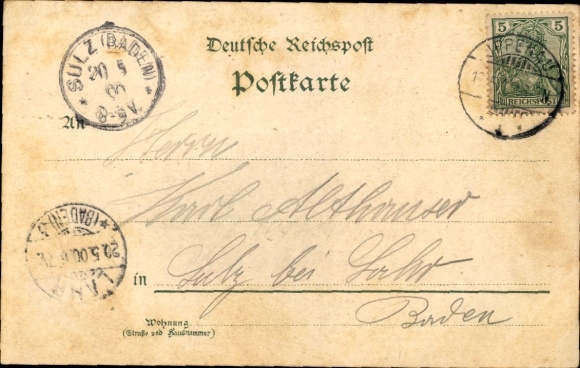 Deutsche Reichspost
Postkarte
5 5
REICHSPOST
OPPENAU
SULZ (BADEN)
20 5
8-9V.
An Herrn
Karl Althauser
in Sulz bei Lahr
Baden
(BADEN)
20.5.00.
Wohnung
(Straße und Hausnummer)